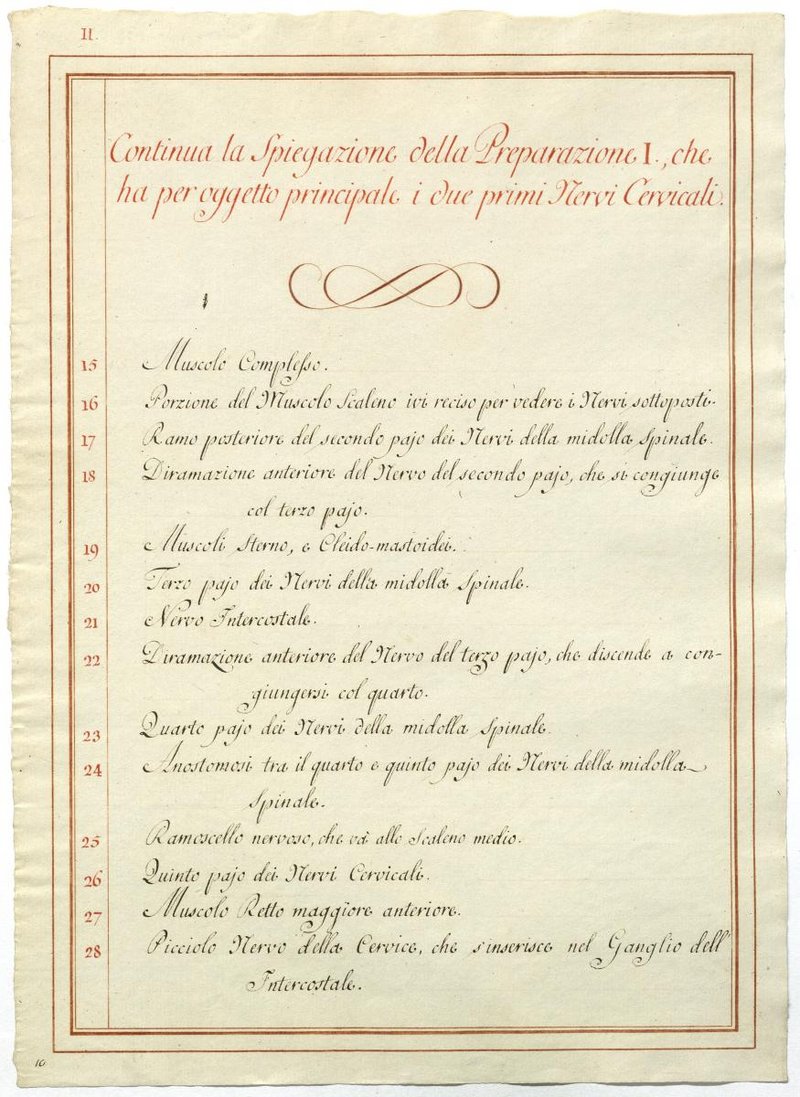 II.
Continua la Spiegazione della Preparazione I., che
ha per oggetto principale i due primi Nervi Cervicali.
15 Muscolo Complesso.
16 Porzione del Muscolo Scaleno ivi reciso per vedere i Nervi sottoposti.
17 Ramo posteriore del secondo pajo dei Nervi della midolla Spinale.
18 Diramazione anteriore del Nervo del secondo pajo, che si congiunge
col terzo pajo.
19 Muscoli Sterno, e Cleido-mastoidei.
20 Terzo pajo dei Nervi della midolla Spinale.
21 Nervo Intercostale.
22 Diramazione anteriore del Nervo del terzo pajo, che discende a con-
giungersi col quarto.
23 Quarto pajo dei Nervi della midolla Spinale.
24 Anostomosi tra il quarto e quinto pajo dei Nervi della midolla
Spinale.
25 Ramoscello nervoso, che và allo Scaleno medio.
26 Quinto pajo dei Nervi Cervicali.
27 Muscolo Retto maggiore anteriore.
28 Picciolo Nervo della Cervice, che s'inserisce nel Ganglio dell'
Intercostale.